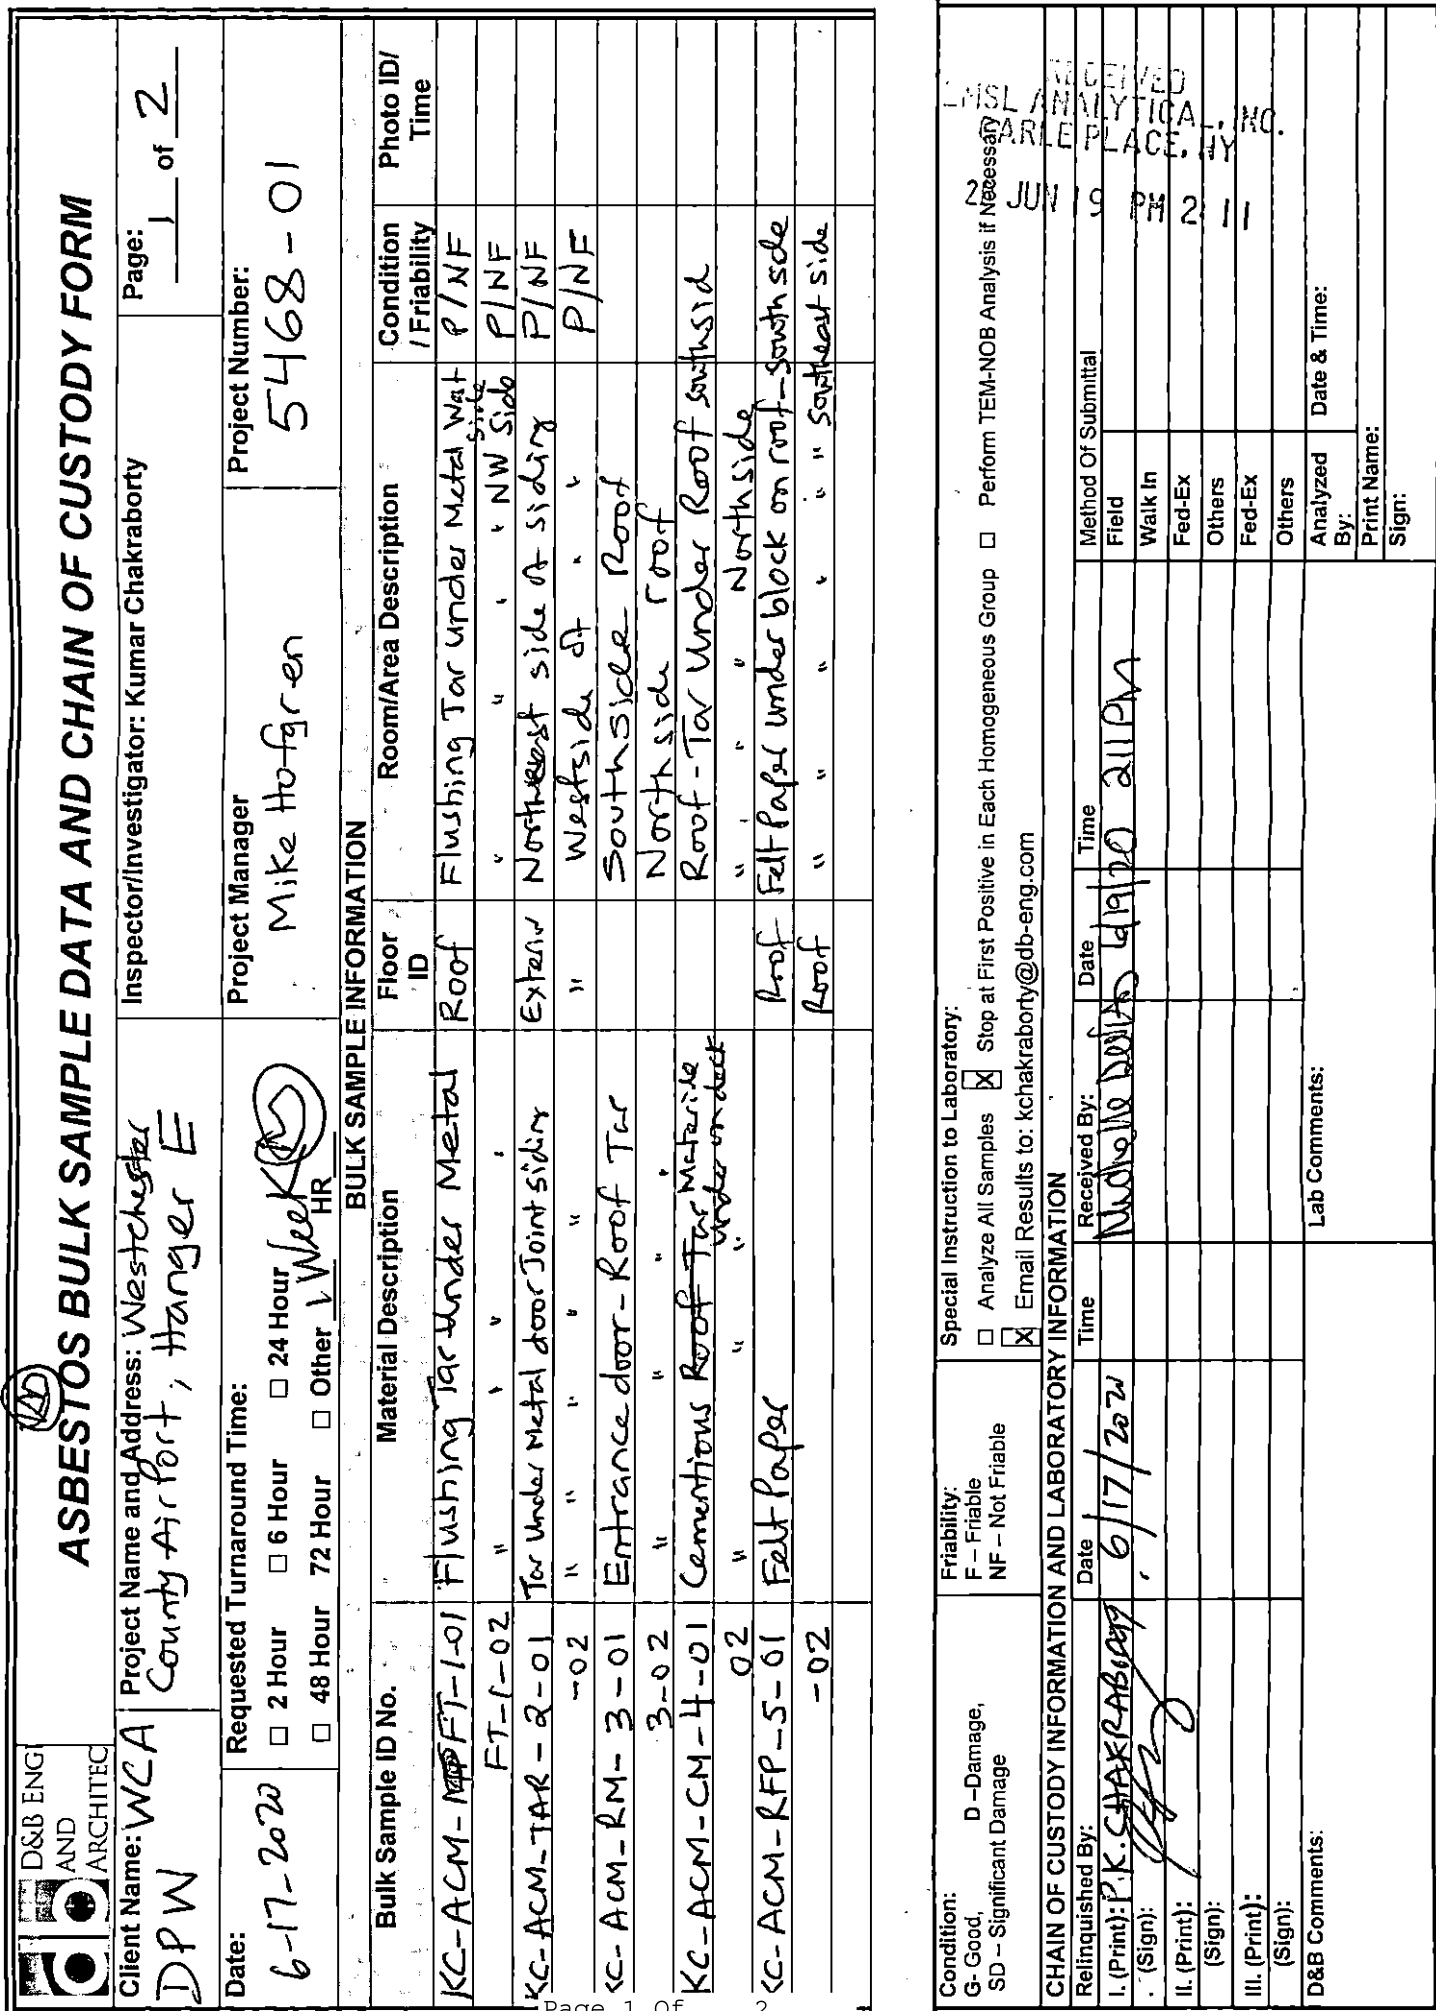 D&B ENGI
AND
ARCHITEC
ASBESTOS BULK SAMPLE DATA AND CHAIN OF CUSTODY FORM
Client Name: WCA
DPW
Project Name and Address: Westchester
County AirPort, Hanger E
Inspector/Investigator: Kumar Chakraborty
Page:
1 of 2
Date:
6-17-2020
Requested Turnaround Time:
□ 2 Hour □ 6 Hour □ 24 Hour
□ 48 Hour 72 Hour □ Other 1 Week HR
Project Manager
Mike Hofgren
Project Number:
5468-01
BULK SAMPLE INFORMATION
Bulk Sample ID No. Material Description Floor ID Room/Area Description Condition / Friability Photo ID/ Time
KC-ACM-FT-1-01 Flushing Tar Under Metal Roof Flushing Tar under Metal Wat side P/NF
FT-1-02 " " " " " " " NW Side P/NF
KC-ACM-TAR-2-01 Tar Under Metal door Joint siding Exterior Northwest side of siding P/NF
-02 " " " " " Westside of " " P/NF
KC-ACM-RM-3-01 Entrance door-Roof Tar Southside Roof
3-02 " " " Northside roof
KC-ACM-CM-4-01 Cementious Roof Tar Materile under on deck Roof-Tar Under Roof southsid
02 " " " " " " Northside
KC-ACM-RFP-5-01 Felt Paper Roof Felt Paper under block on roof-southside
-02 Roof " " " " " southeast side
Page 1 Of 2
Condition:
G- Good, D -Damage,
SD – Significant Damage
Friability:
F – Friable
NF – Not Friable
Special Instruction to Laboratory:
□ Analyze All Samples X Stop at First Positive in Each Homogeneous Group □ Perform TEM-NOB Analysis if Necessary
X Email Results to: kchakraborty@db-eng.com
RECEIVED
EMSL ANALYTICAL, INC.
CARLE PLACE, NY
2 JUN 19 PM 2 11
CHAIN OF CUSTODY INFORMATION AND LABORATORY INFORMATION
Relinquished By: Date Time Received By: Date Time Method Of Submittal
I. (Print): P.K. CHAKRABORTY 6/17/2020 6/19/20 211PM Field
(Sign): Walk In
II. (Print): Fed-Ex
(Sign): Others
III. (Print): Fed-Ex
(Sign): Others
D&B Comments:
Lab Comments:
Analyzed By:
Date & Time:
Print Name:
Sign: